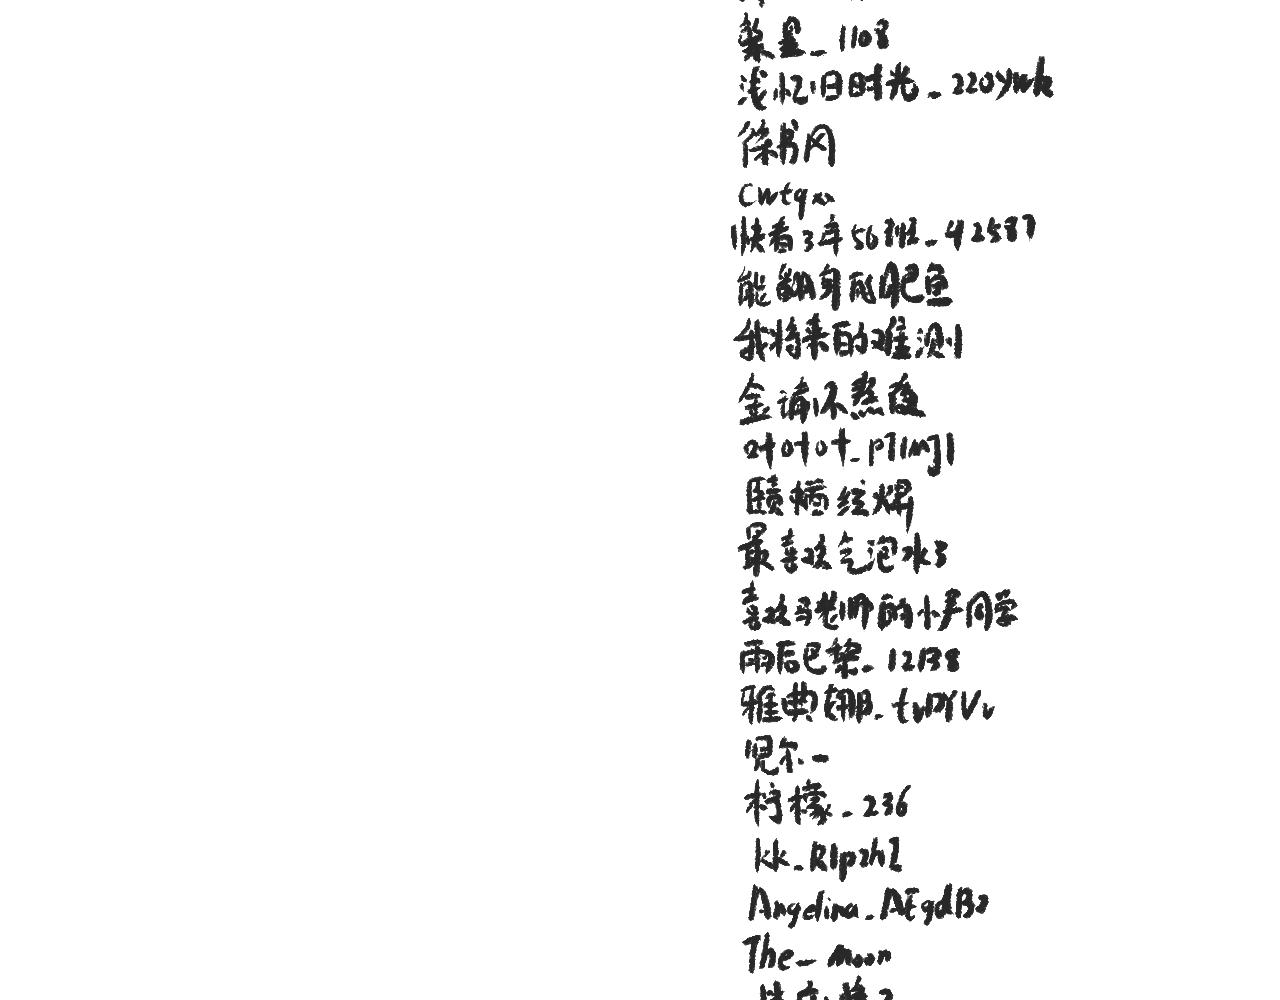 黎星_1108
浅忆旧时光_220ywk
徐书冈
cwtqxx
快看3年56班_42587
能翻身的肥鱼
我将来的难测
金诵不熬夜
叶叶叶_p71mj1
颐栖绘烟
最喜欢气泡水3
喜欢马老师的小尹同学
雨后巴黎_12138
雅典娜_tvPYVv
児尔一
柠檬_236
kk_R1pzhZ
Angelina_AEgdB2
The_Moon